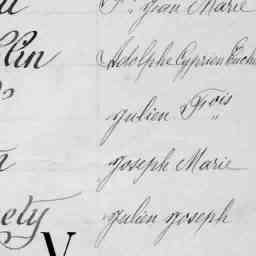 Jean Marie
llin Adolphe Cyprien
Julien Fois
Joseph Marie
ety Julien Joseph
V